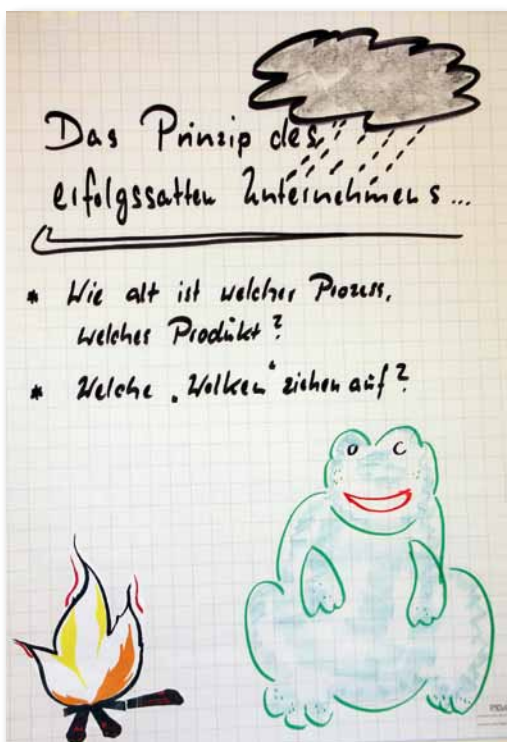 Das Prinzip des
erfolgssatten Unternehmens...
* Wie alt ist welcher Prozess,
welches Produkt?
* Welche „Wolken“ ziehen auf?